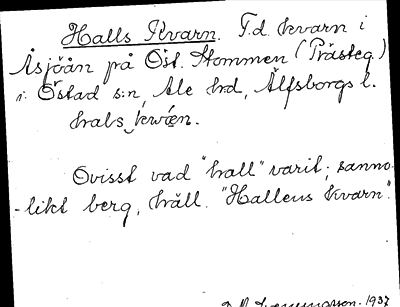 Halls Kvarn. F.d. kvarn i
Åsjöån på Öst. Stommen (Prästeg.)
i Östad s:n, Ale hd, Älfsborgs l.
hals kwén.
Ovisst vad "hall" varit; sanno-
-likt berg, häll. "Hallens kvarn".
1937